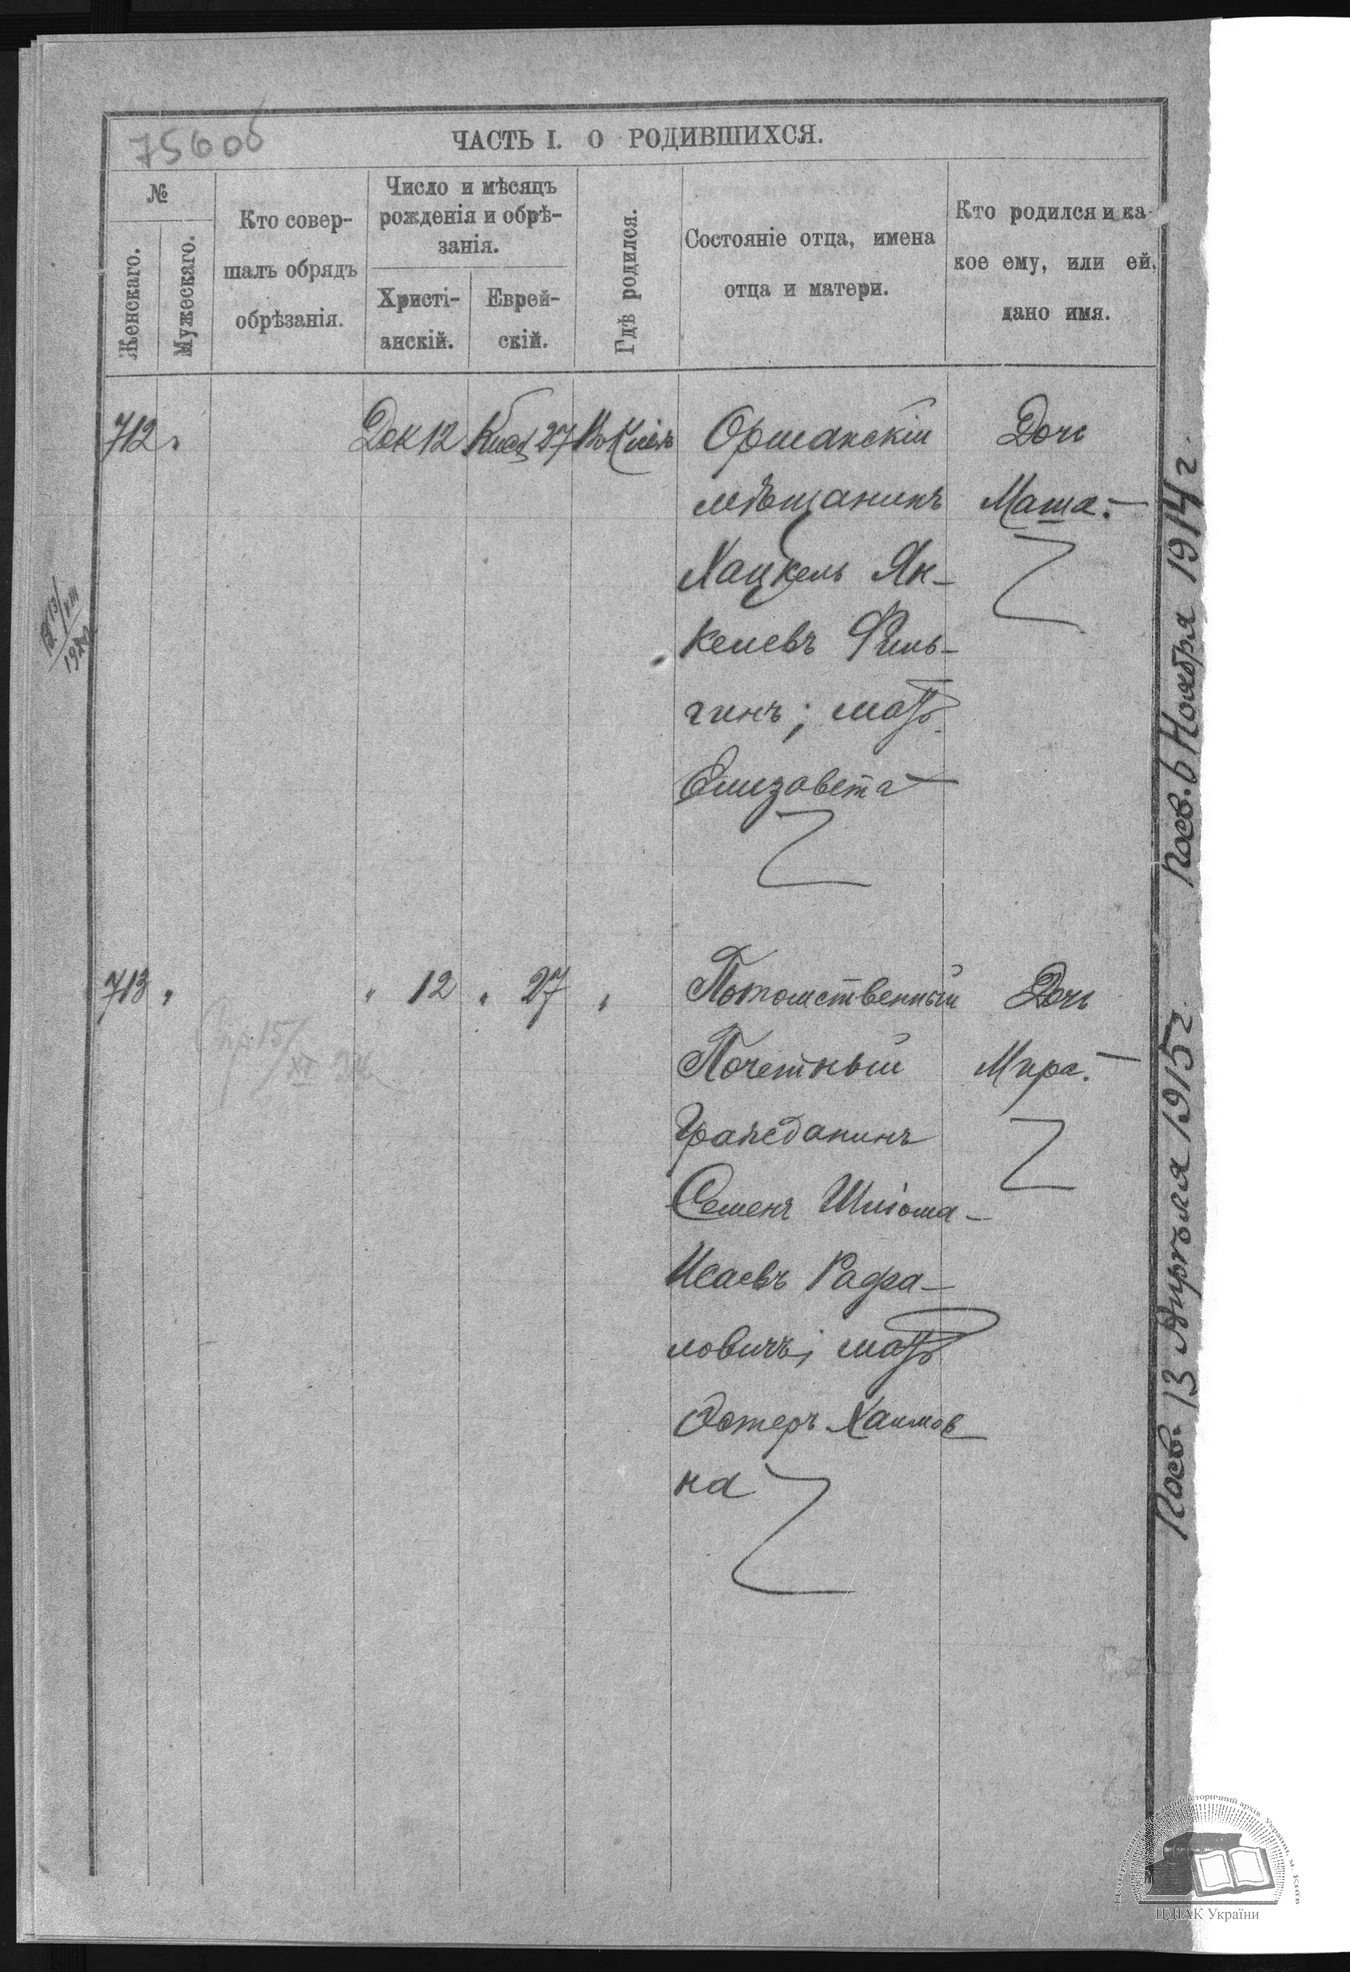 756об
ЧАСТЬ I. О РОДИВШИХСЯ.
№
Женскаго.
Мужескаго.
Кто совер-
шалъ обрядъ
обрѣзанія.
Число и мѣсяцъ
рожденія и обрѣ-
занія.
Христі-
анскій.
Еврей-
скій.
Гдѣ родился.
Состояніе отца, имена
отца и матери.
Кто родился и ка-
кое ему, или ей,
дано имя.
712 „ Дек 12 Кисл 27 Въ Кіевѣ Оршанскій Дочь
мѣщанинъ Маша.
Хацкель Ян-
келевъ Филь-
гинъ; мать
Елизавета
713 „ „ 12 „ 27 „ Потомственный Дочь
Почетный Мира.
Гражданинъ
Семенъ Шліома-
Исаевъ Рафа-
ловичъ; мать
Эстеръ Хаимов
на
13/VIII
Спр. 15/XI
Посв. 6 Ноября 1914 г.
Посв. 13 Апрѣля 1915 г.
ЦДІАК України